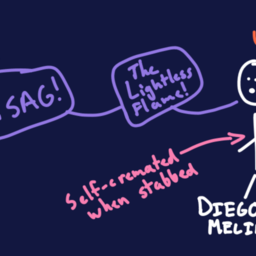 SAG!
The
Lightless
Flame!
Self-cremated
when stabbed
DIEGO